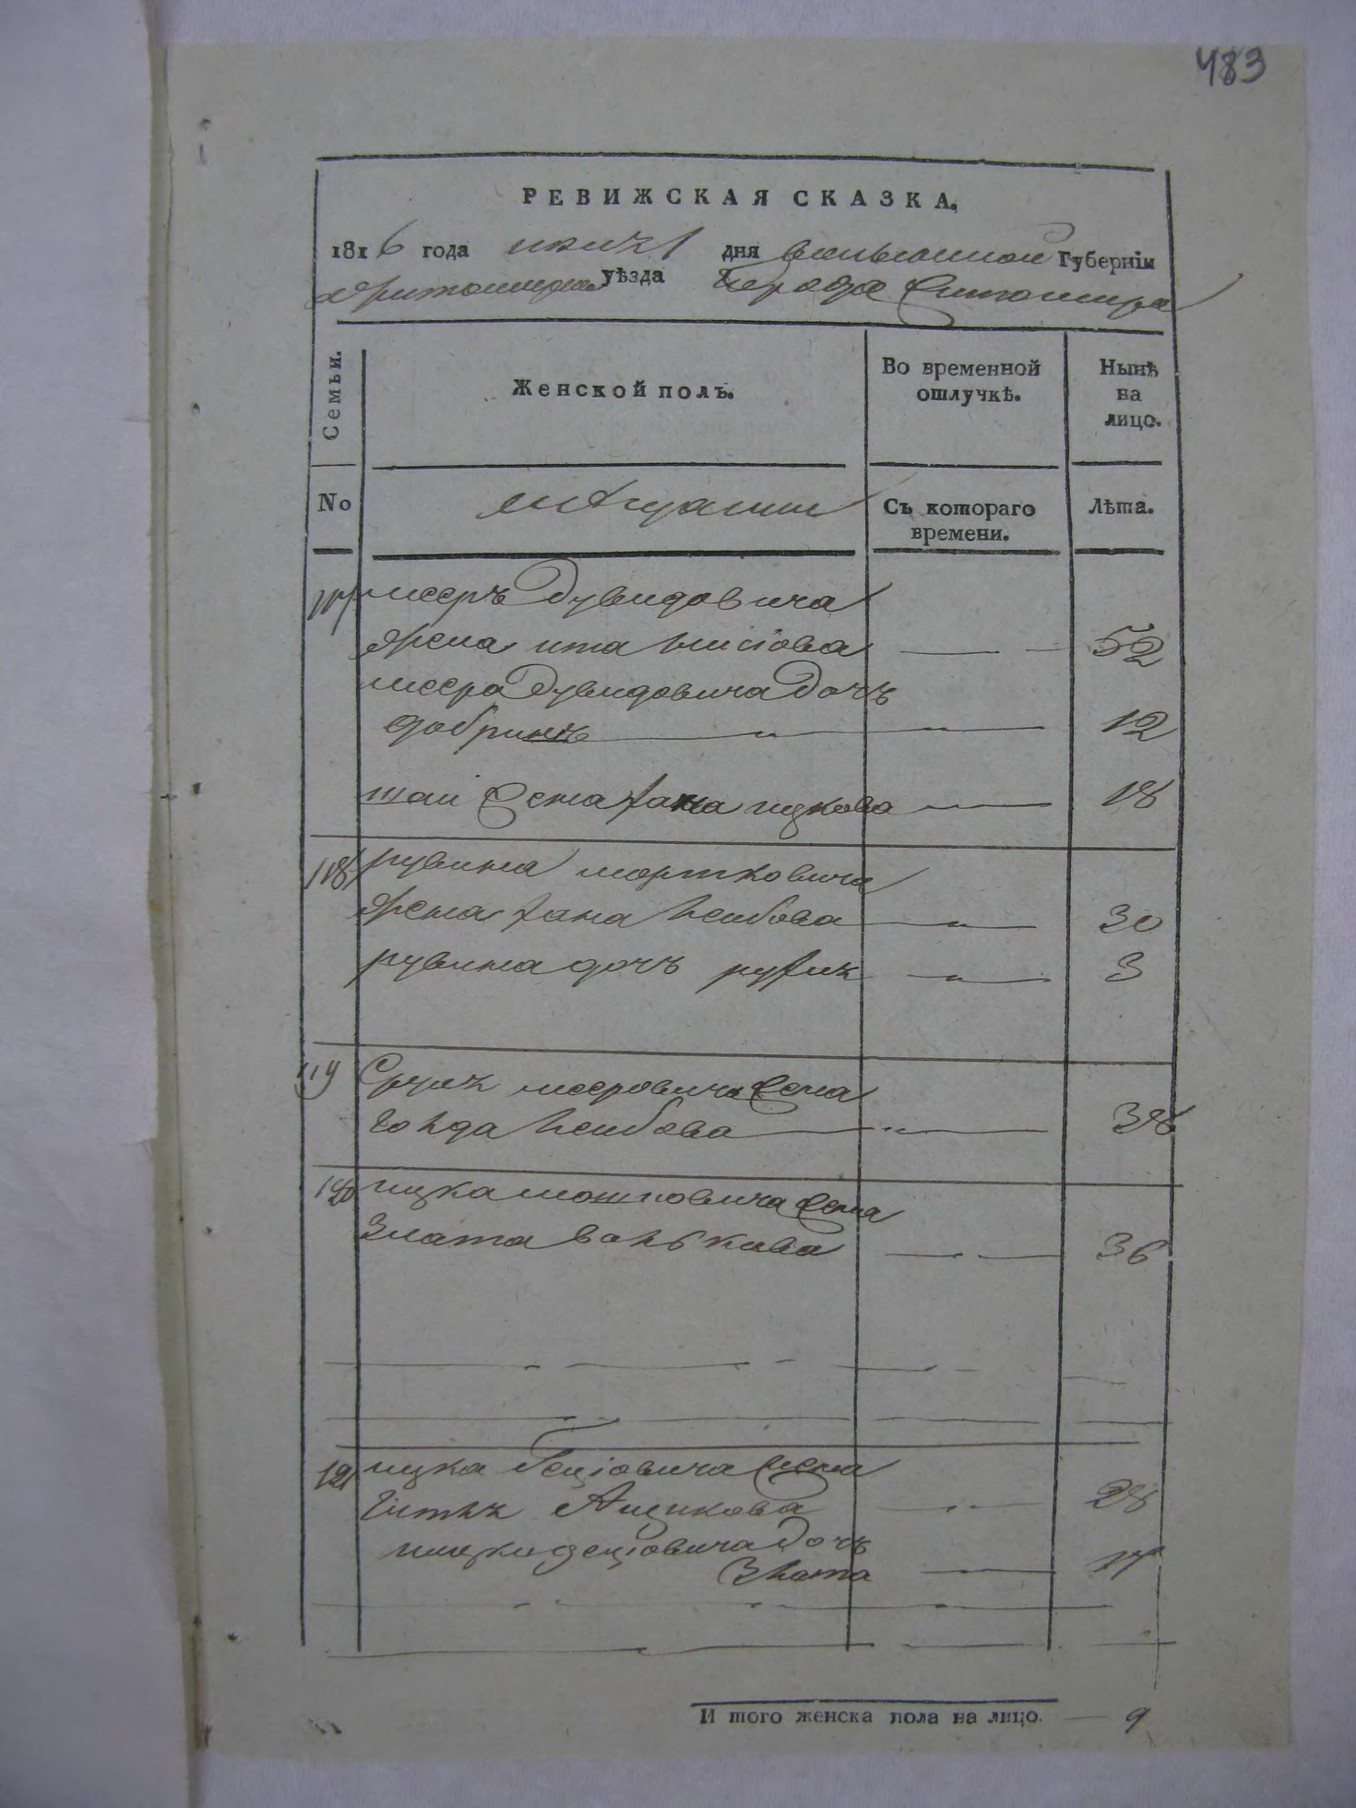 483
РЕВИЖСКАЯ СКАЗКА.
1816 года июня 1 дня волынской Губерніи
житомирскаго уѣзда города житомира
Семьи.
Женской полъ.
Во временной отлучкѣ.
Нынѣ на лицо.
No
мѣщанин
Съ котораго времени.
Лѣта.
117 мееръ Дувидовича
жена ита лиова 52
меера Дувидовича дочъ
добринъ 12
жена хана ицкова 18
118 рувина мортковича
жена хана лейбова 30
рувина дочъ рухлъ 3
119 Срулъ мееровичъ жена
голда лейбова 38
120 ицка мошковича жена
Злата волькова 36
121 ицка жена
Гитлъ Аицикова 28
ицки дочъ
Злата 14
И того женска пола на лицо. 9